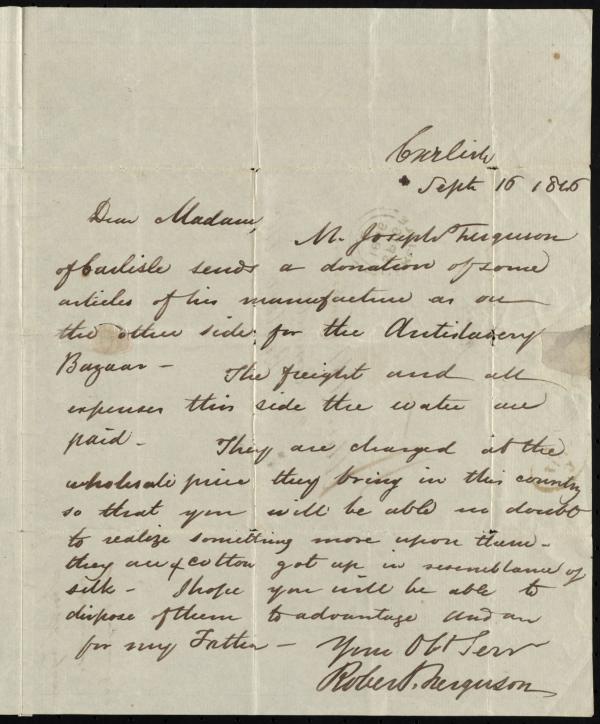 Carlisle
Sept 16 1846
Dear Madam,
Mr. Joseph Ferguson
of Carlisle sends a donation of some
articles of his manufacture as on
the other side for the Antislavery
Bazaar - The freight and all
expenses this side the water are
paid - They are charged at the
wholesale price they bring in this country
so that you will be able no doubt
to realize something more upon them -
they are cotton got up in resemblance of
silk - I hope you will be able to
dispose of them to advantage and am
for my Father - Your Obt Serv
Robert Ferguson